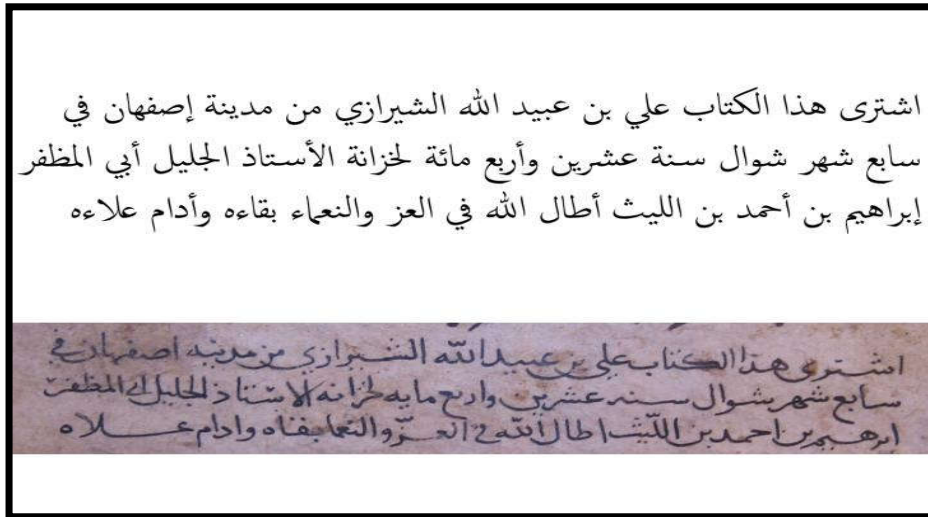 اشترى هذا الكتاب علي بن عبيد الله الشيرازي من مدينة إصفهان في
سابع شهر شوال سنة عشرين وأربع مائة لخزانة الأستاذ الجليل أبي المظفر
إبراهيم بن أحمد بن الليث أطال الله في العز والنعماء بقاءه وأدام علاءه
اشترى هذا الكتاب علي بن عبيد الله الشيرازي من مدينه اصفهان في
سابع شهر شوال سنه عشرين واربع مايه لخزانه الاستاذ الجليل ابي المظفر
ابرهيم بن احمد بن الليث اطال الله في العز والنعما بقاه وادام علاه